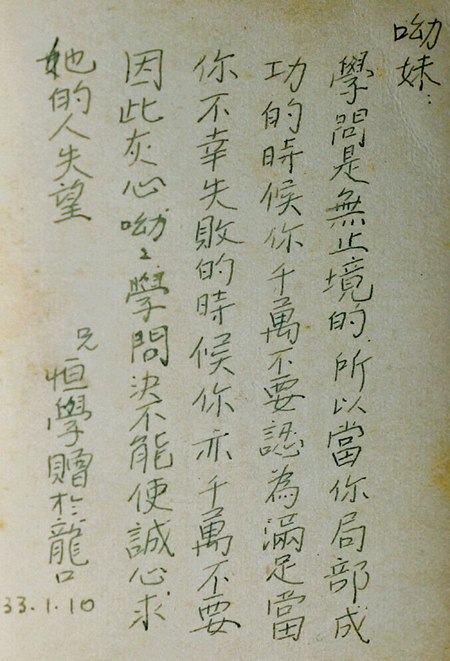 呦妹：
學問是無止境的，所以當你局部成
功的時候你千萬不要認為滿足當
你不幸失敗的時候你亦千萬不要
因此灰心呦々學問決不能使誠心求
她的人失望
兄恒學贈於龍口
33.1.10